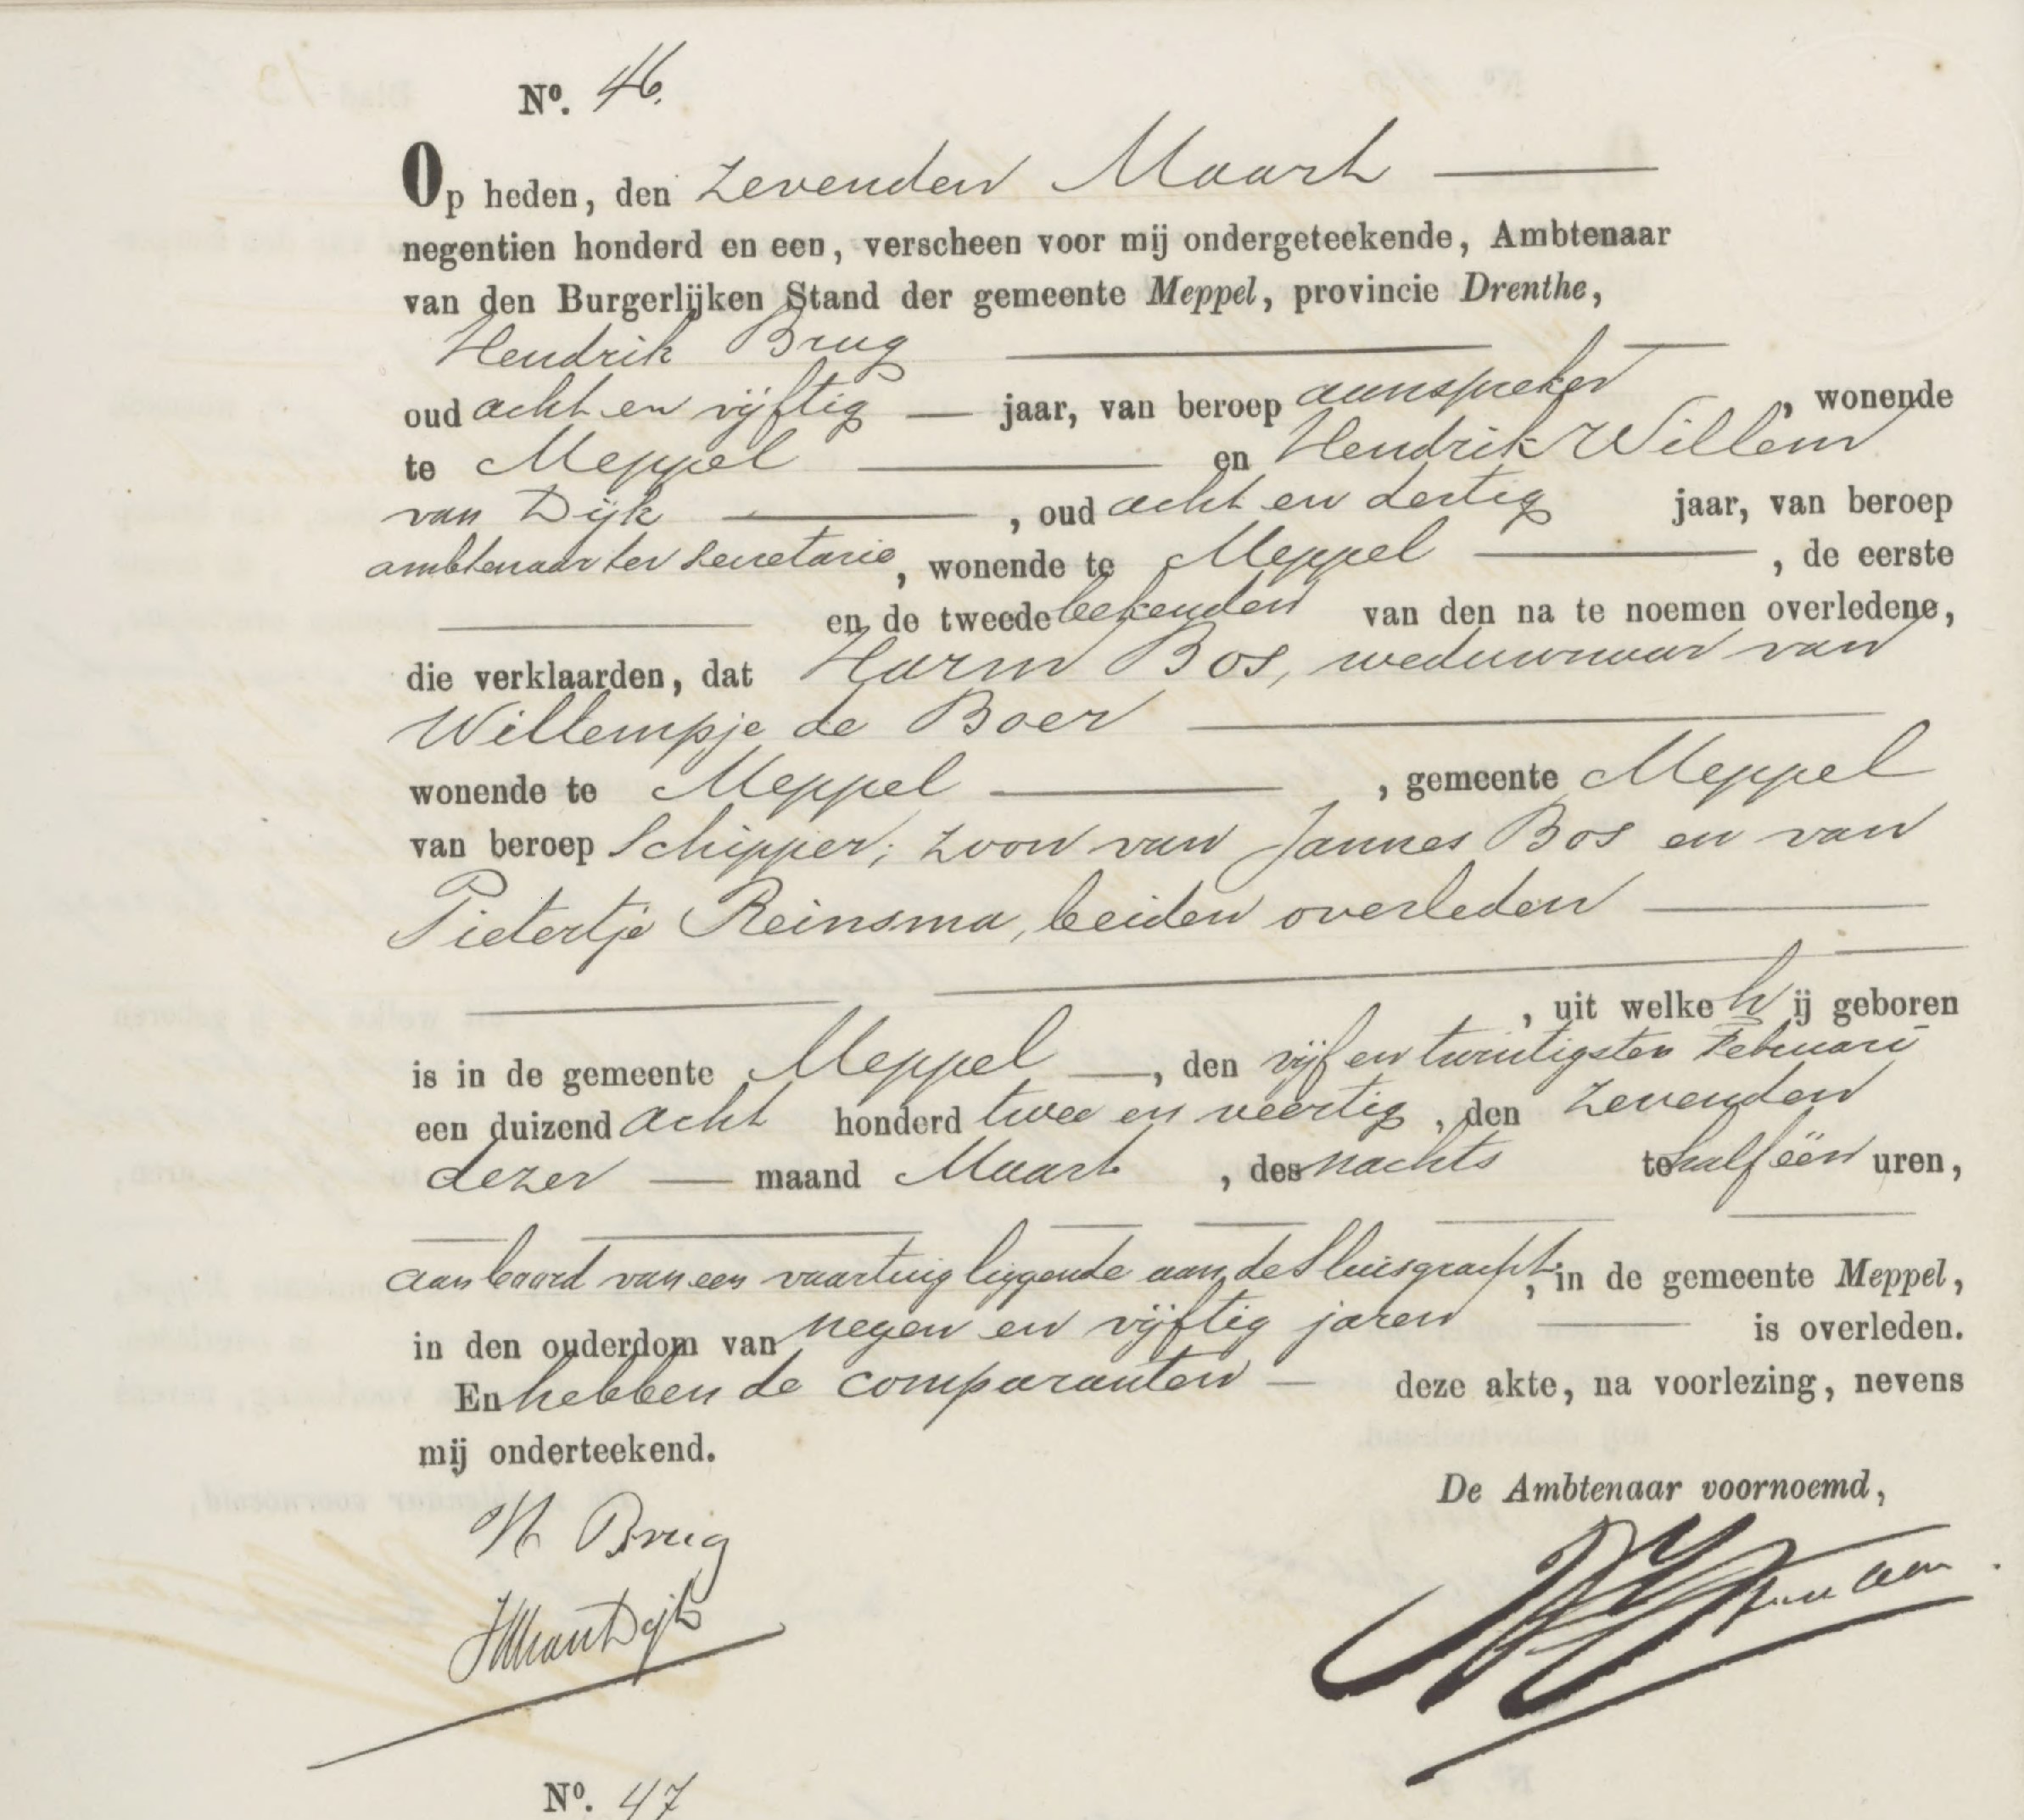 No. 46.
Op heden, den zevenden Maart
negentien honderd en een, verscheen voor mij ondergeteekende, Ambtenaar
van den Burgerlijken Stand der gemeente Meppel, provincie Drenthe,
Hendrik Brug
oud acht en vijftig jaar, van beroep aanspreker, wonende
te Meppel en Hendrik Willem
van Dijk, oud acht en dertig jaar, van beroep
ambtenaar ter secretarie, wonende te Meppel, de eerste
en de tweede bekenden van den na te noemen overledene,
die verklaarden, dat Harm Bos, weduwnaar van
Willempje de Boer
wonende te Meppel, gemeente Meppel
van beroep Schipper; zoon van Jannes Bos en van
Pietertje Reinsma, beiden overleden
, uit welke hij geboren
is in de gemeente Meppel, den vijf en twintigsten Februari
een duizend acht honderd twee en veertig, den zevenden
dezer maand Maart, des nachts te half één uren,
aan boord van een vaartuig liggende aan de Sluisgracht, in de gemeente Meppel,
in den ouderdom van negen en vijftig jaren is overleden.
En hebben de comparanten deze akte, na voorlezing, nevens
mij onderteekend.
De Ambtenaar voornoemd,
H Brug
HW van Dijk
No. 47